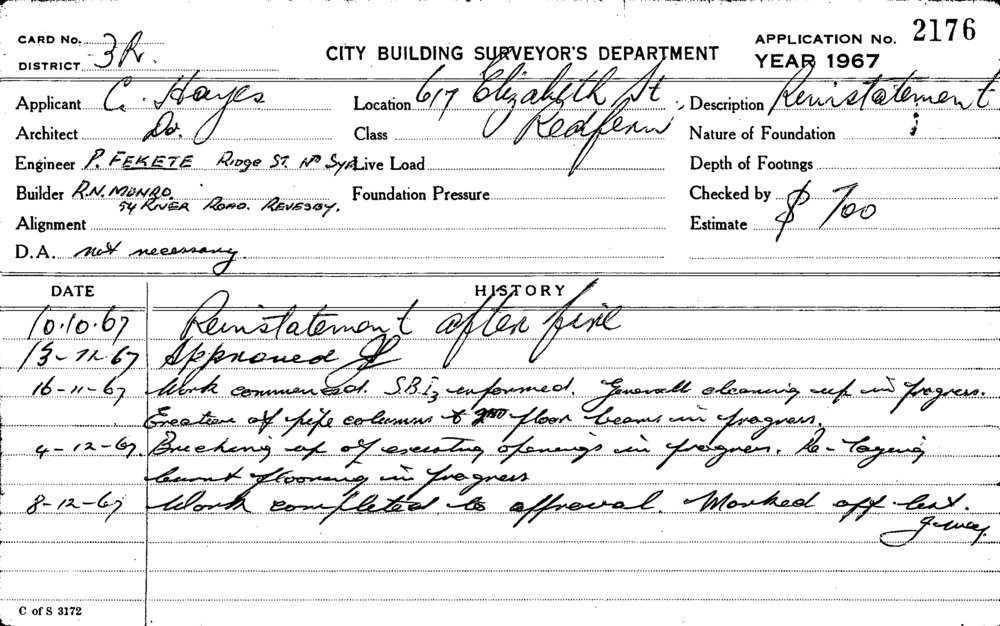 CARD No. 3R.
DISTRICT
CITY BUILDING SURVEYOR'S DEPARTMENT
APPLICATION No. 2176
YEAR 1967
Applicant C. Hayes
Location 617 Elizabeth St
Redfern
Description Reinstatement
Architect Do.
Class
Nature of Foundation
Engineer P. FEKETE RIDGE ST. Nth SYD
Live Load
Depth of Footings
Builder R.N. MUNRO.
54 RIVER ROAD. REVESBY.
Foundation Pressure
Checked by
Alignment
Estimate $ 700
D.A. not necessary.
DATE HISTORY
10.10.67 Reinstatement after fire
Approved
16-11-67 Work commenced. S.B.I3 informed. Generall cleaning up in progress.
Erection of pipe columns to 2ND floor beams in progress.
4-12-67. Bricking up of existing openings in progress. Re-
burnt flooring in progress
8-12-67 Work completed to approval. Marked off list.
C of S 3172